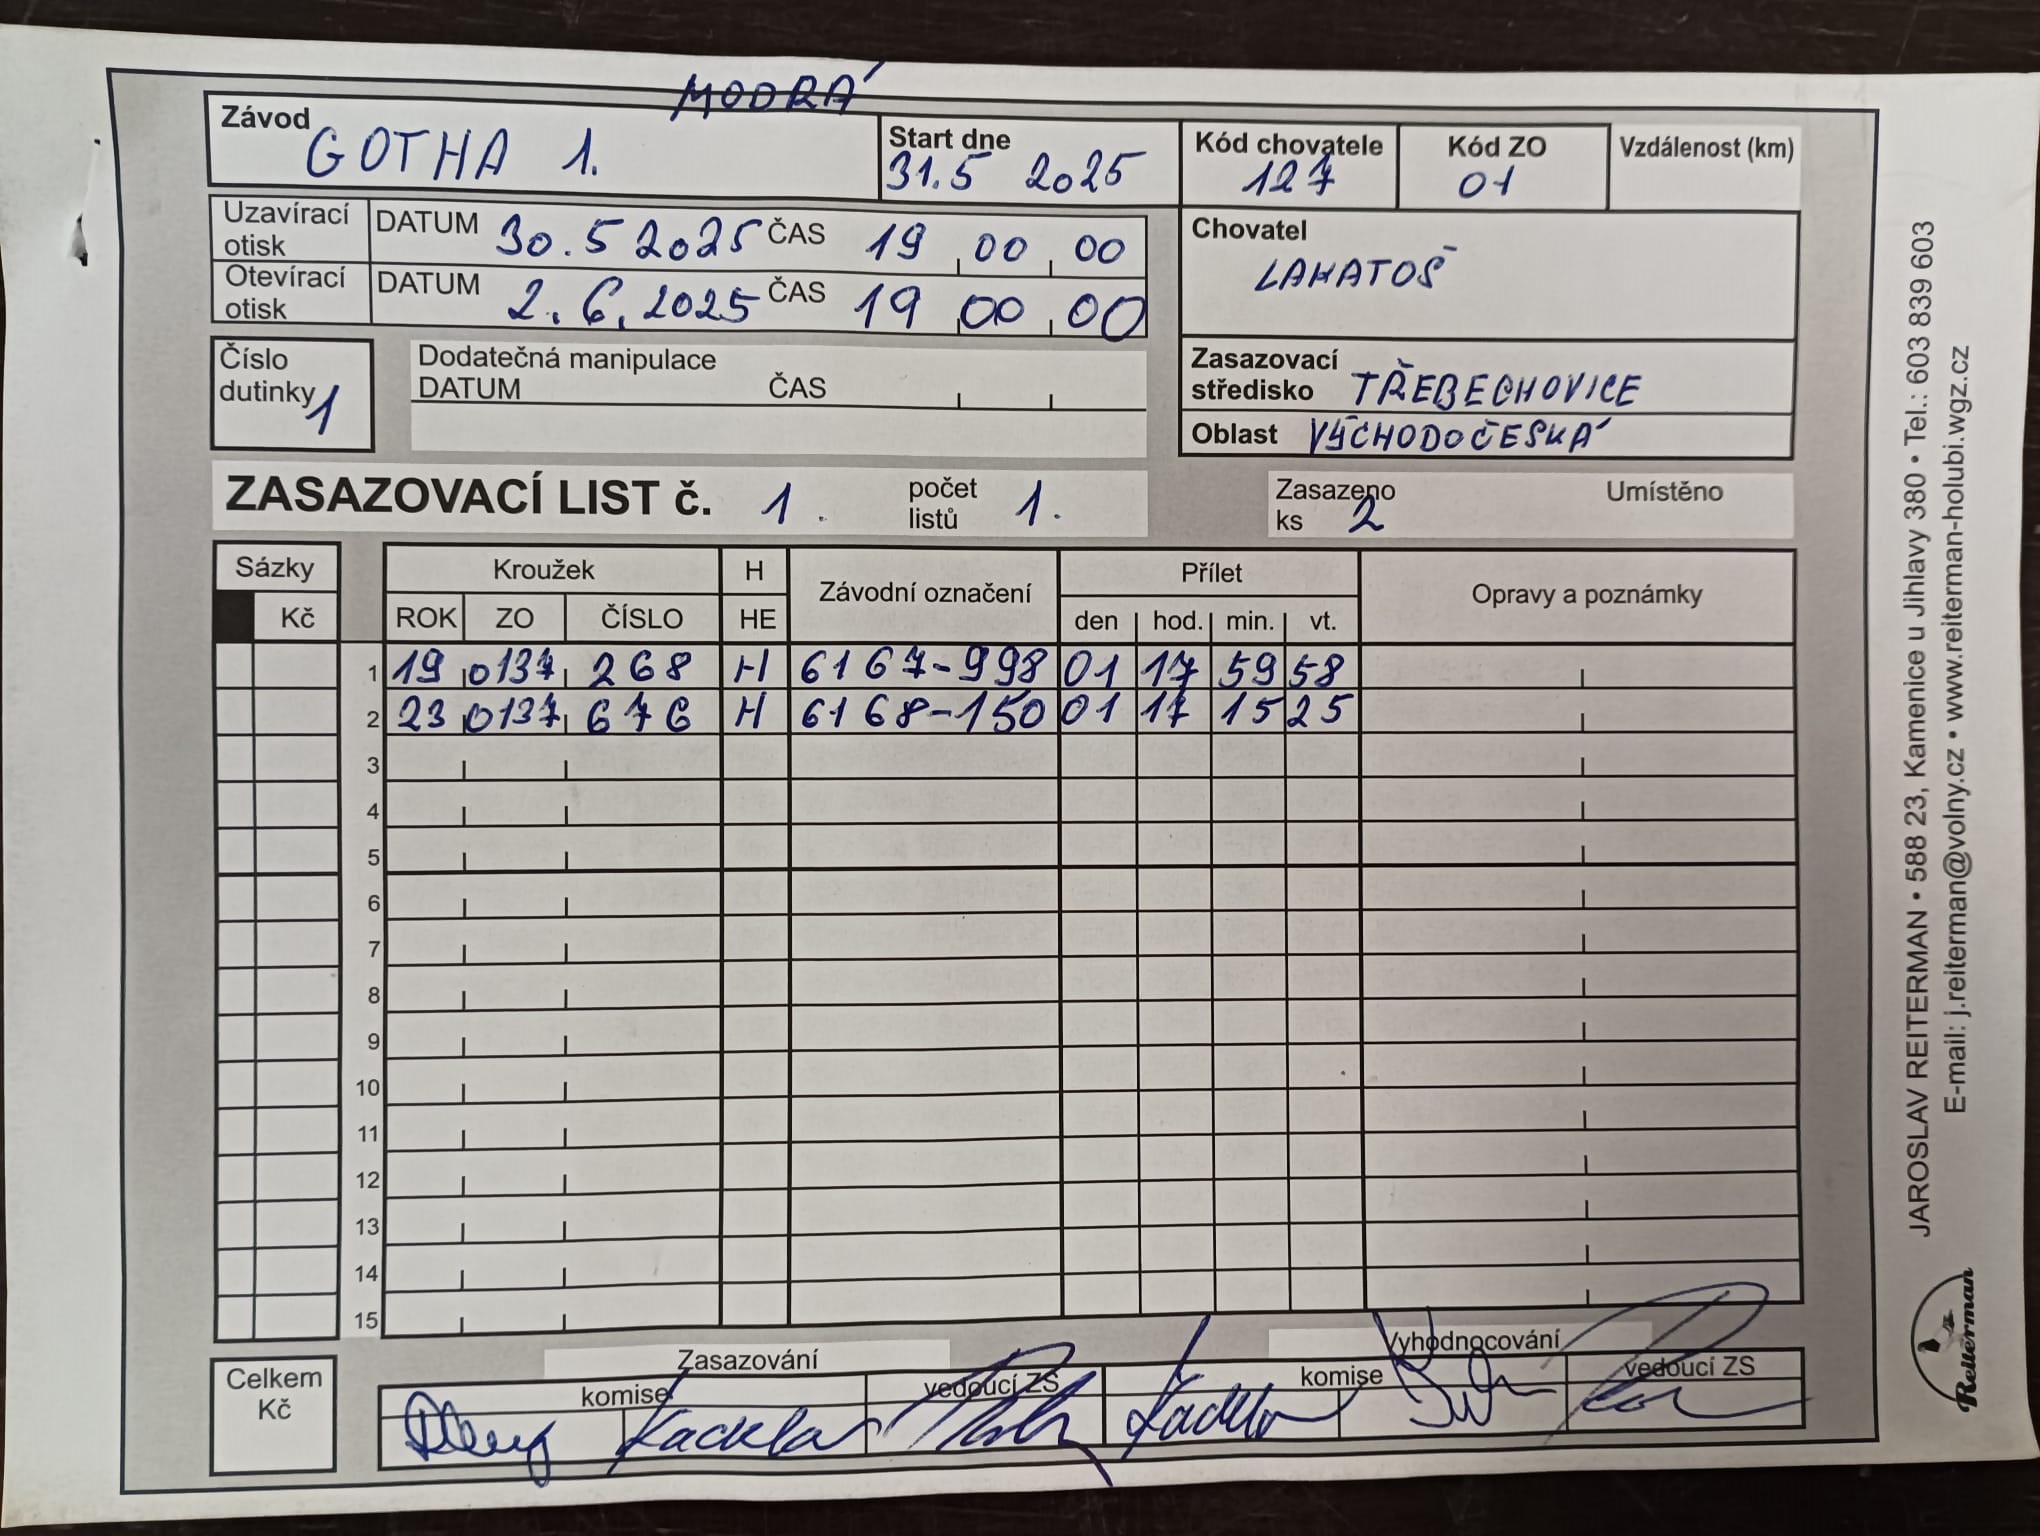 MODRÁ
Závod GOTHA 1.
Start dne 31.5 2025
Kód chovatele 127
Kód ZO 01
Vzdálenost (km)
Uzavírací otisk DATUM 30.5 2025 ČAS 19 00 00
Otevírací otisk DATUM 2.6.2025 ČAS 19 00 00
Chovatel
LAKATOŠ
Číslo dutinky 1
Dodatečná manipulace
DATUM ČAS
Zasazovací středisko TŘEBECHOVICE
Oblast VÝCHODOČESKÁ
ZASAZOVACÍ LIST č. 1. počet listů 1.
Zasazeno ks 2 Umístěno
Sázky Kroužek H Závodní označení Přílet Opravy a poznámky
Kč ROK ZO ČÍSLO HE den hod. min. vt.
1 19 0137 268 H 6167-998 01 17 59 58
2 23 0137 676 H 6168-150 01 17 15 25
3
4
5
6
7
8
9
10
11
12
13
14
15
Celkem Kč
Zasazování Vyhodnocování
komise vedoucí ZS komise vedoucí ZS
JAROSLAV REITERMAN • 588 23, Kamenice u Jihlavy 380 • Tel.: 603 839 603
E-mail: j.reiterman@volny.cz • www.reiterman-holubi.wgz.cz
Reiterman